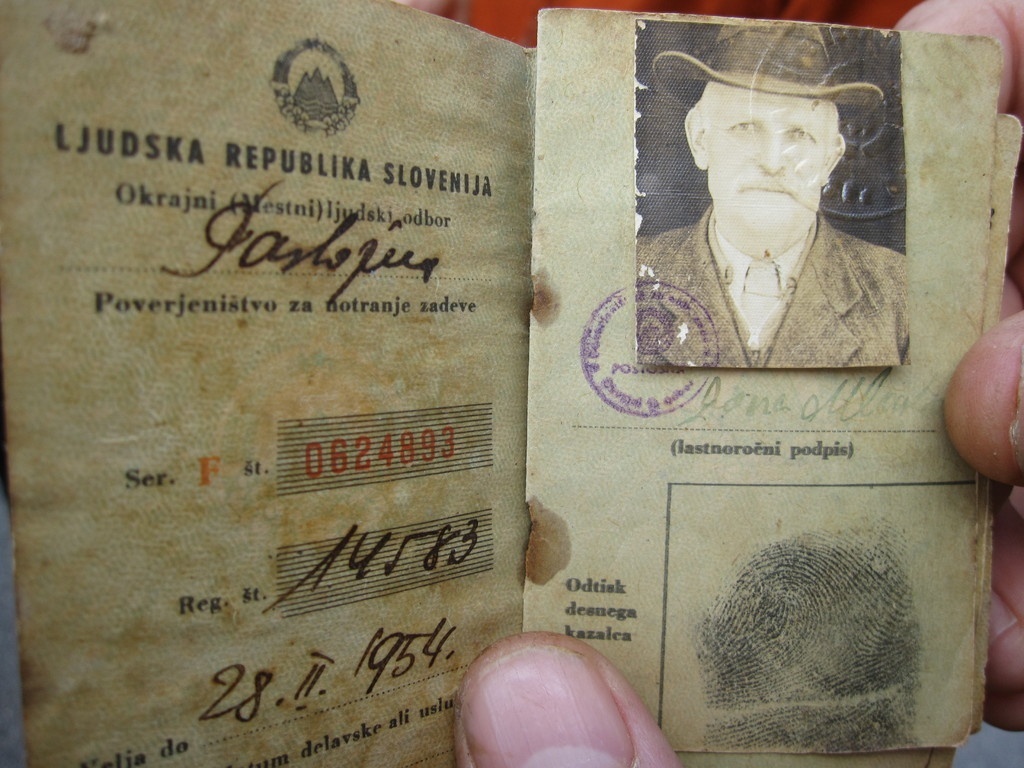 LJUDSKA REPUBLIKA SLOVENIJA
Okrajni (Mestni) ljudski odbor
Postojna
Poverjeništvo za notranje zadeve
Ser. F št. 0624893
Reg. št. 14583
28. II. 1954.
Velja do
delavske ali
POSTOJNA
(lastnoročni podpis)
Odtisk
desnega
kazalca